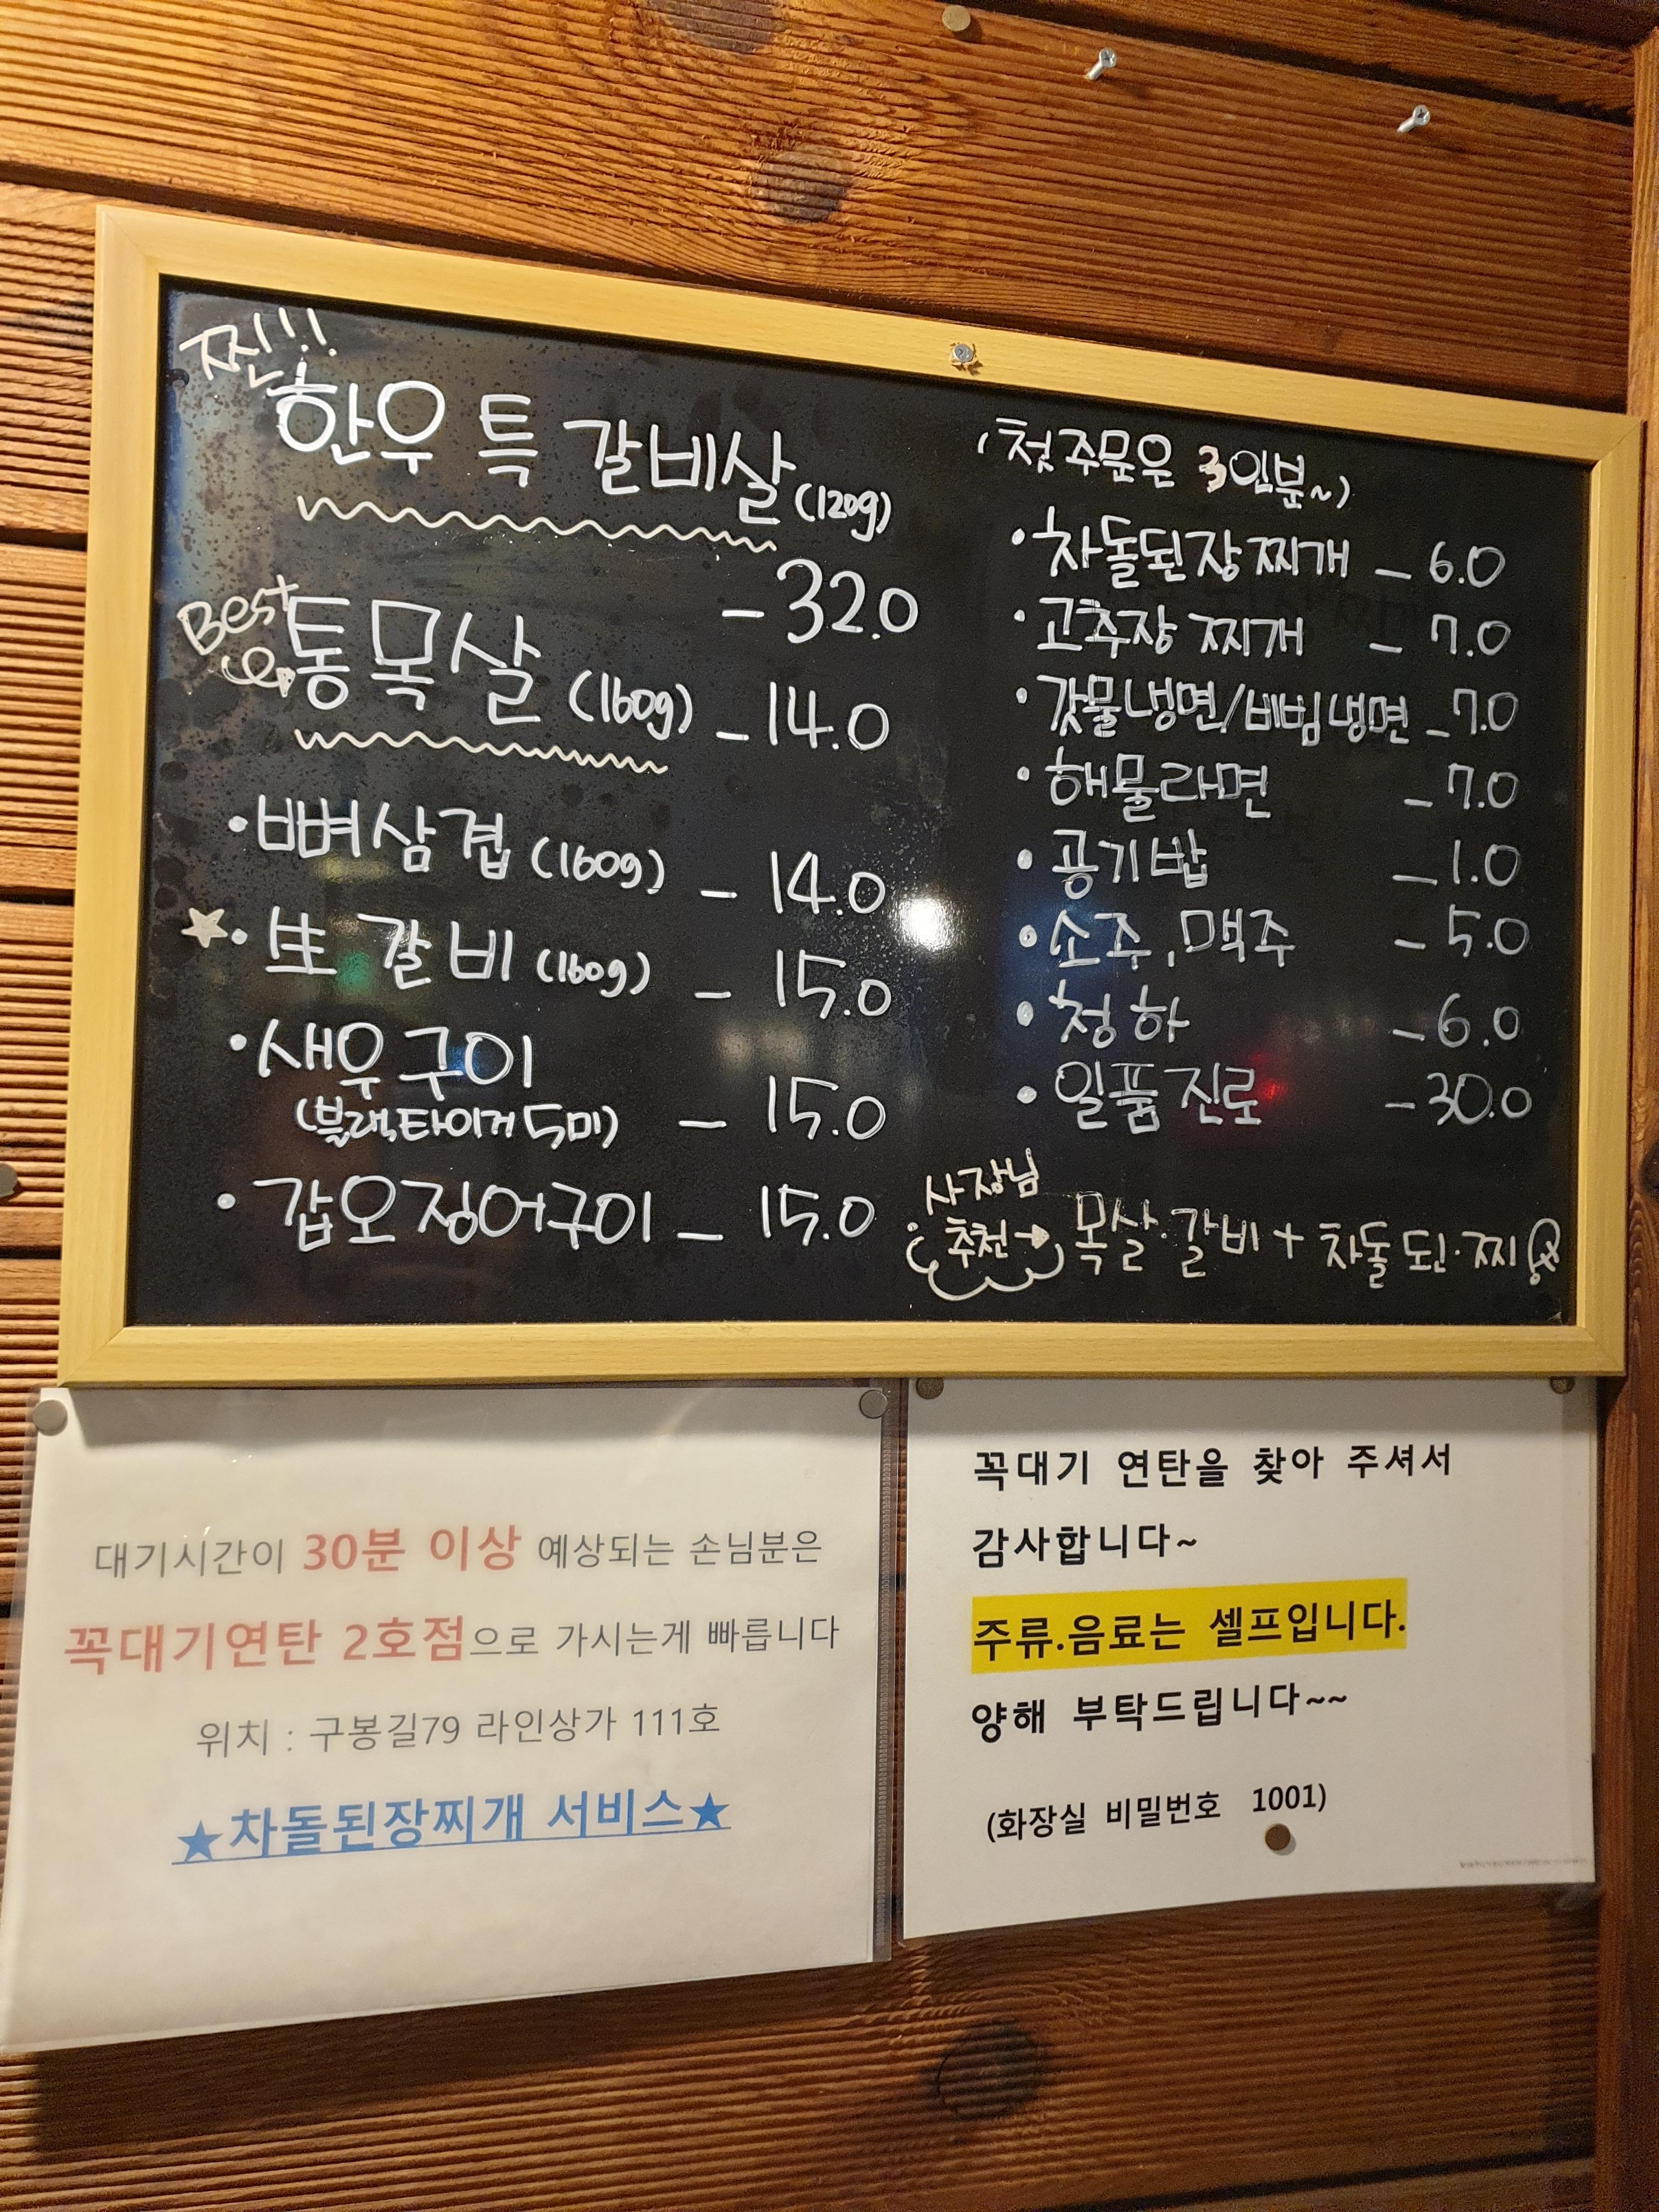 찐!!!
한우 특 갈비살 (120g)
- 32.0
Best
통목살 (160g) - 14.0
· 뼈삼겹 (160g) - 14.0
★ · 生 갈비 (160g) - 15.0
· 새우구이
(블랙타이거 5미) - 15.0
· 갑오징어구이 - 15.0
(첫주문은 3인분~)
· 차돌된장찌개 - 6.0
· 고추장 찌개 - 7.0
· 갓물냉면/비빔냉면 - 7.0
· 해물라면 - 7.0
· 공기밥 - 1.0
· 소주, 맥주 - 5.0
· 청하 - 6.0
· 일품진로 - 30.0
사장님
추천→ 목살·갈비 + 차돌된·찌
대기시간이 30분 이상 예상되는 손님분은
꼭대기연탄 2호점으로 가시는게 빠릅니다
위치 : 구봉길79 라인상가 111호
★차돌된장찌개 서비스★
꼭대기 연탄을 찾아 주셔서
감사합니다~
주류.음료는 셀프입니다.
양해 부탁드립니다~~
(화장실 비밀번호 1001)